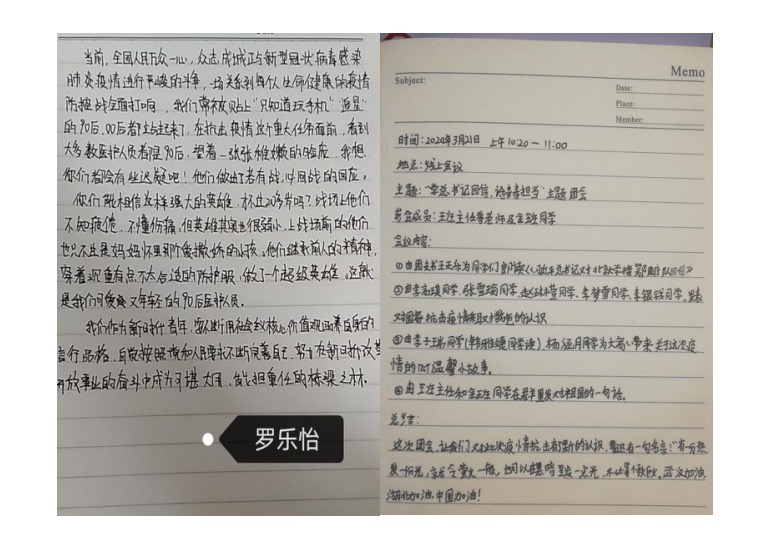 当前，全国人民万众一心，众志成城正与新型冠状病毒感染
肺炎疫情进行严峻的斗争，一场关系到每个人生命健康的疫情
防控战全面打响，我们常被贴上"只知道玩手机""追星"
的90后、00后都站起来了。在抗击疫情这个重大任务面前，看到
大多数医护人员都是90后，望着一张张稚嫩的脸庞，我想
你们都会有些迟疑吧！他们做出了若有战，必回战的回应。
你们能相信这样强大的英雄，不过20多岁吗？战场上他们
不知疲倦，不懂伤痛，但英雄其实也很弱小，上战场前的他们
也只不过是妈妈怀里那个爱撒娇的小孩，他们继承前人的精神，
穿着沉重有点不太合适的防护服，做了一个超级英雄，这就
是我们可爱又年轻的90后医护人员。
我们作为新时代青年，要不断用社会核心价值观涵养自身的
言行品格，自觉按照党和人民要求不断完善自己，努力在新时代改革
开放事业的奋斗中成为可堪大用、能担重任的栋梁之材。
罗乐怡
Memo
Subject:
Date:
Place:
Member:
时间：2020年3月21日 上午10:20～11:00
地点：线上会议
主题："学总书记回信，话青春担当"主题团会
参会成员：班主任曹老师及全班同学
会议内容：
①由团支书王天乐为同学们宣读《习近平总书记回信》
②由李同学，张雪瑜同学，赵林萱同学，李梦雪同学，李银钱同学，发表
对国家抗击疫情采取措施的认识
③由李子瑞同学，杨涵月同学为大家带来关于这次疫
情的四个温馨小故事。
④由班主任和全班同学在屏幕里发对祖国的一句话。
总结：
这次团会，让我们又对此次疫情抗击有了新的认识，鲁迅有一句名言："有一分热
发一份光，就令萤火一般，也可以在黑暗里发一点光，不必等候炬火。武汉加油
湖北加油，中国加油！